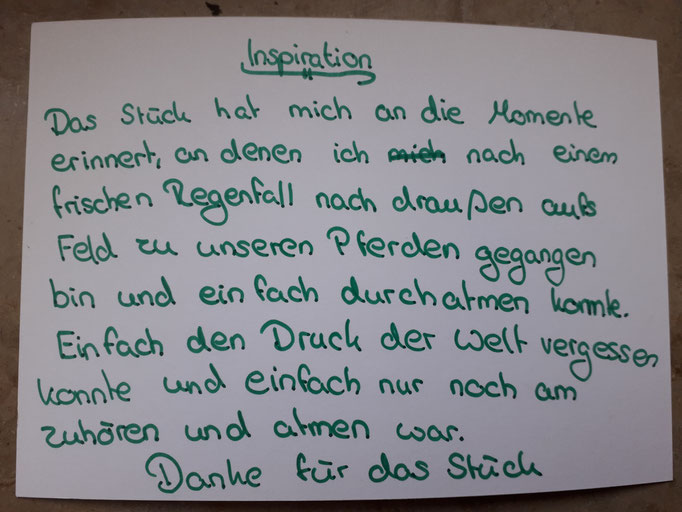 Inspiration
Das Stück hat mich an die Momente
erinnert, an denen ich mich nach einem
frischen Regenfall nach draußen aufs
Feld zu unseren Pferden gegangen
bin und einfach durchatmen konnte.
Einfach den Druck der Welt vergessen
konnte und einfach nur noch am
zuhören und atmen war.
Danke für das Stück